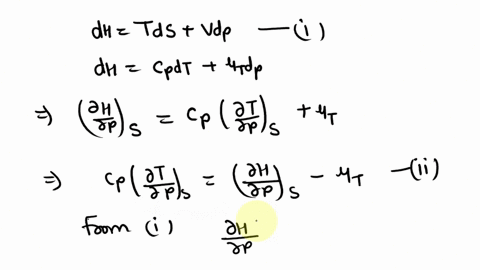 dH = TdS + Vdp —(i)
dH = CpdT + μ_T dp
⇒ (∂H/∂p)_S = Cp (∂T/∂p)_S + μ_T
⇒ Cp (∂T/∂p)_S = (∂H/∂p)_S − μ_T —(ii)
From (i) ∂H/∂p